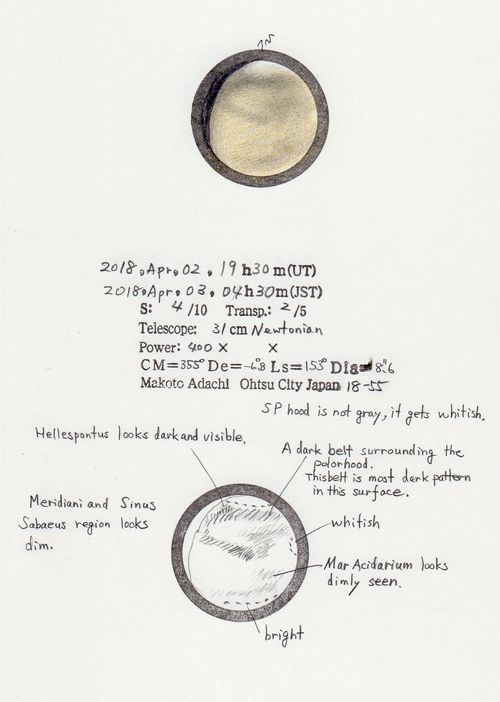 N
2018, Apr, 02, 19h30m(UT)
2018, Apr, 03, 04h30m(JST)
S: 4/10 Transp.: 2/5
Telescope: 31cm Newtonian
Power: 400× ×
CM=355° De=-6°.8 Ls=153° Dia=8".6
Makoto Adachi Ohtsu City Japan 18-55
SP hood is not gray, it gets whitish.
Hellespontus looks dark and visible.
A dark belt surrounding the
polorhood.
This belt is most dark pattern
in this surface.
Meridiani and Sinus
Sabaeus region looks
dim.
whitish
Mar Acidarium looks
dimly seen.
bright